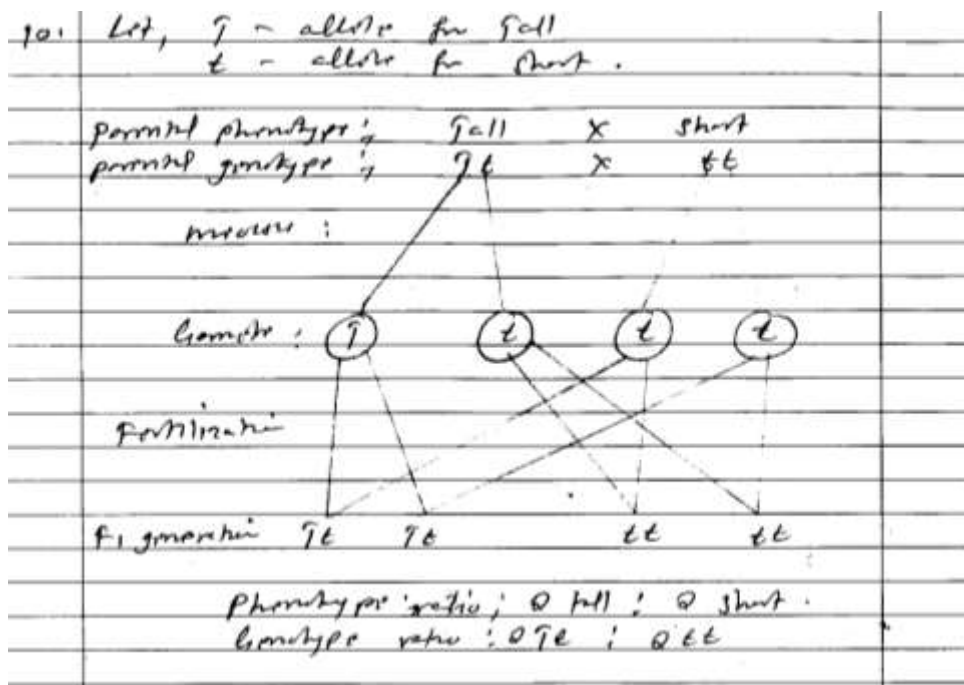 10. Let, T - allele for Tall
t - allele for short.
parental phenotype; Tall x short
parental genotype; Tt x tt
meiosis :
Gamete : T t t t
Fertilization
F1 generation Tt Tt tt tt
Phenotype ratio; 2 tall : 2 short.
Genotype ratio : 2Tt : 2tt